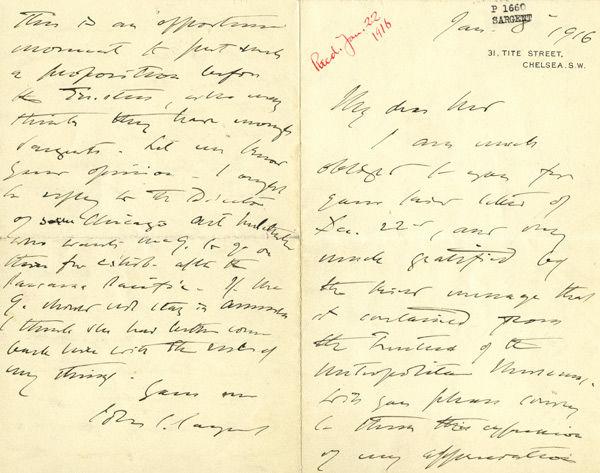 P 1660
SARGENT
Recd. Jan. 22
1916
Jan. 8 1916
31, TITE STREET,
CHELSEA. S.W.
My dear Ned
I am much
obliged to you for
your kind letter of
Dec. 22d, and very
much gratified by
the kind message that
it contained from
the Trustees of the
Metropolitan Museum.
Will you please convey
to them this expression
of my appreciation
This is an opportune
moment to put such
a proposition before
the Trustees, who may
think they have enough
Sargents. Let me know
your opinion. I ought
to reply to the Director
of Chicago Art Institute
who wants Mme G. to go on
there for exhib. after the
Panama Pacific. If Mme
G. should not stay in America
I think she had better come
back here with the rest of
my things.
Yours ever
John S. Sargent